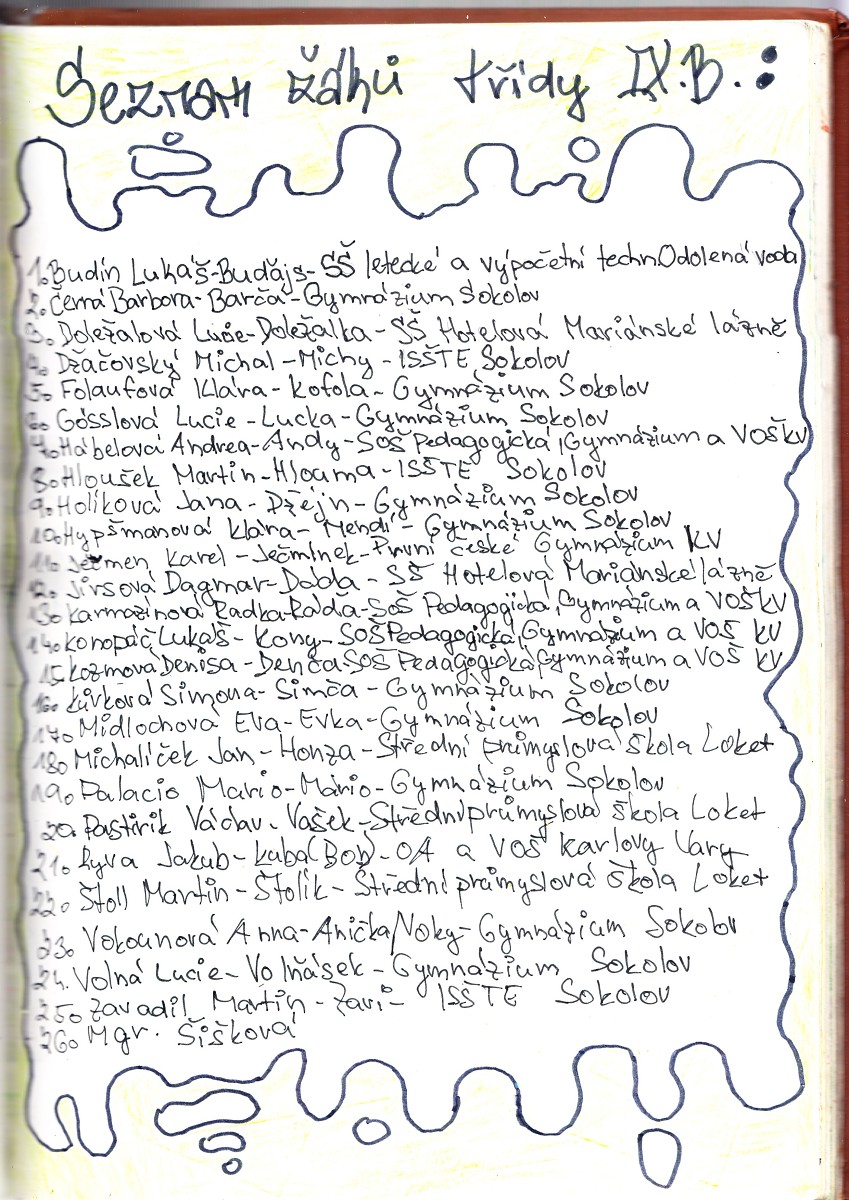 Seznam žáků třídy IX.B.:
1. Budín Lukáš-Budájs-SŠ letecké a výpočetní techn.Odolená voda
2. Černá Barbora-Barča-Gymnázium Sokolov
3. Doležalová Lucie-Doležalka-SŠ Hotelová Mariánské lázně
4. Džačovský Michal-Michy-ISŠTE Sokolov
5. Folaufová Klára-Kofola-Gymnázium Sokolov
6. Gösslová Lucie-Lucka-Gymnázium Sokolov
7. Hábelová Andrea-Andy-SOŠ Pedagogická,Gymnázium a VOŠ KV
8. Hloušek Martin-Hlouma-ISŠTE Sokolov
9. Holíková Jana-Džejn-Gymnázium Sokolov
10. Hypšmanová Klára-Mendí-Gymnázium Sokolov
11. Ječmen Karel-Ječmínek-První české Gymnázium KV
12. Jirsová Dagmar-Dabla-SŠ Hotelová Mariánské lázně
13. Karmazínová Radka-Ráďa-SOŠ Pedagogická,Gymnázium a VOŠ KV
14. Konopáč Lukáš-Kony-SOŠ Pedagogická,Gymnázium a VOŠ KV
15. Kozmová Denisa-Denča-SOŠ Pedagogická,Gymnázium a VOŠ KV
16. Kůrková Simona-Simča-Gymnázium Sokolov
17. Midlochová Eva-Evka-Gymnázium Sokolov
18. Michalíček Jan-Honza-Střední průmyslová škola Loket
19. Palacio Mario-Mário-Gymnázium Sokolov
20. Pastirik Václav-Vašek-Střední průmyslová škola Loket
21. Ryva Jakub-Kuba(Bob)-OA a VOŠ Karlovy Vary
22. Štoll Martin-Štolík-Střední průmyslová škola Loket
23. Vokounová Anna-Anička/Voky-Gymnázium Sokolov
24. Volná Lucie-Volňásek-Gymnázium Sokolov
25. Zavadil Martin-Zavi-ISŠTE Sokolov
26. Mgr. Šišková